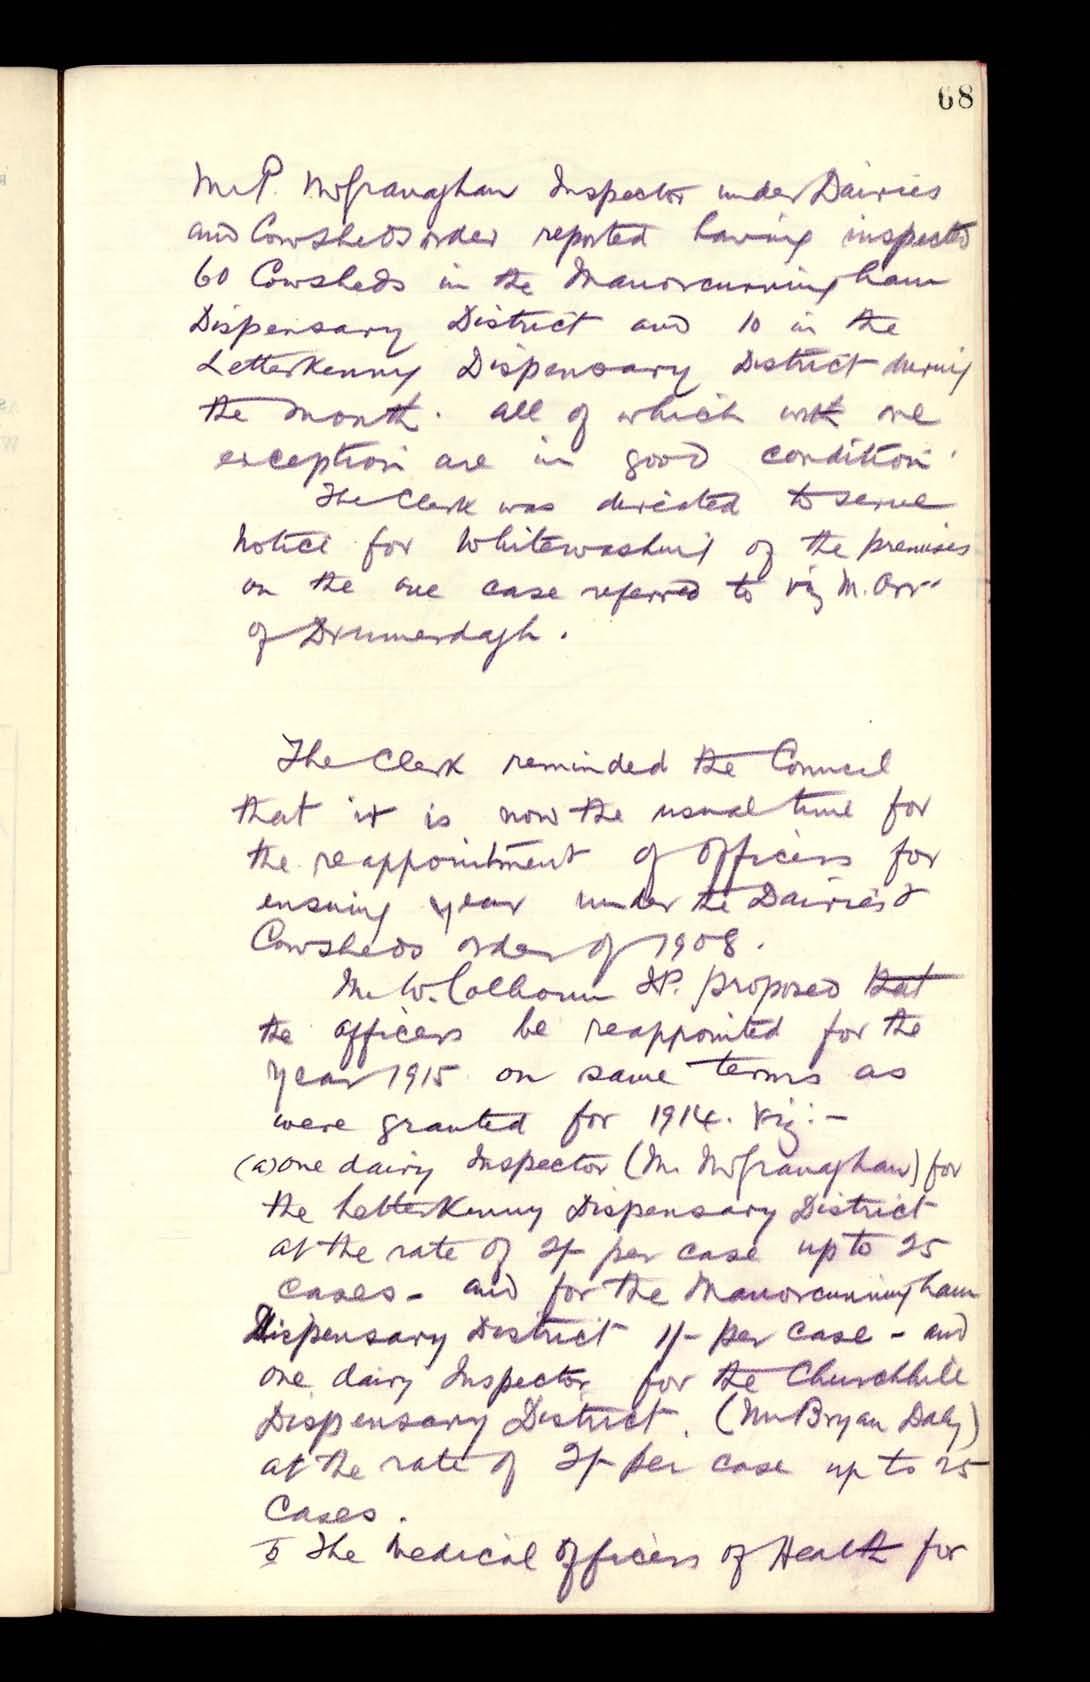 68
Mr P. McGranaghan Inspector under Dairies
and Cowsheds order reported having inspected
60 Cowsheds in the Manorcunningham
Dispensary District and 10 in the
Letterkenny Dispensary District during
the month. all of which with one
exception are in good condition.
The Clerk was directed to serve
notice for Whitewashing of the premises
on the one case referred to viz M. Orr
of Drumerdagh.
The Clerk reminded the Council
that it is now the usual time for
the reappointment of Officers for
ensuing year under the Dairies &
Cowsheds order of 1908.
Mr W. Colhoun JP. proposed that
the officers be reappointed for the
year 1915 on same terms as
were granted for 1914. viz:-
(a) one dairy Inspector (Mr McGranaghan) for
the Letterkenny Dispensary District
at the rate of 2/- per case up to 25
cases - and for the Manorcunningham
Dispensary District 1/- per case - and
one dairy Inspector for the Churchhill
Dispensary District. (Mr Bryan Daly)
at the rate of 2/- per case up to 25
Cases.
b The Medical Officers of Health for